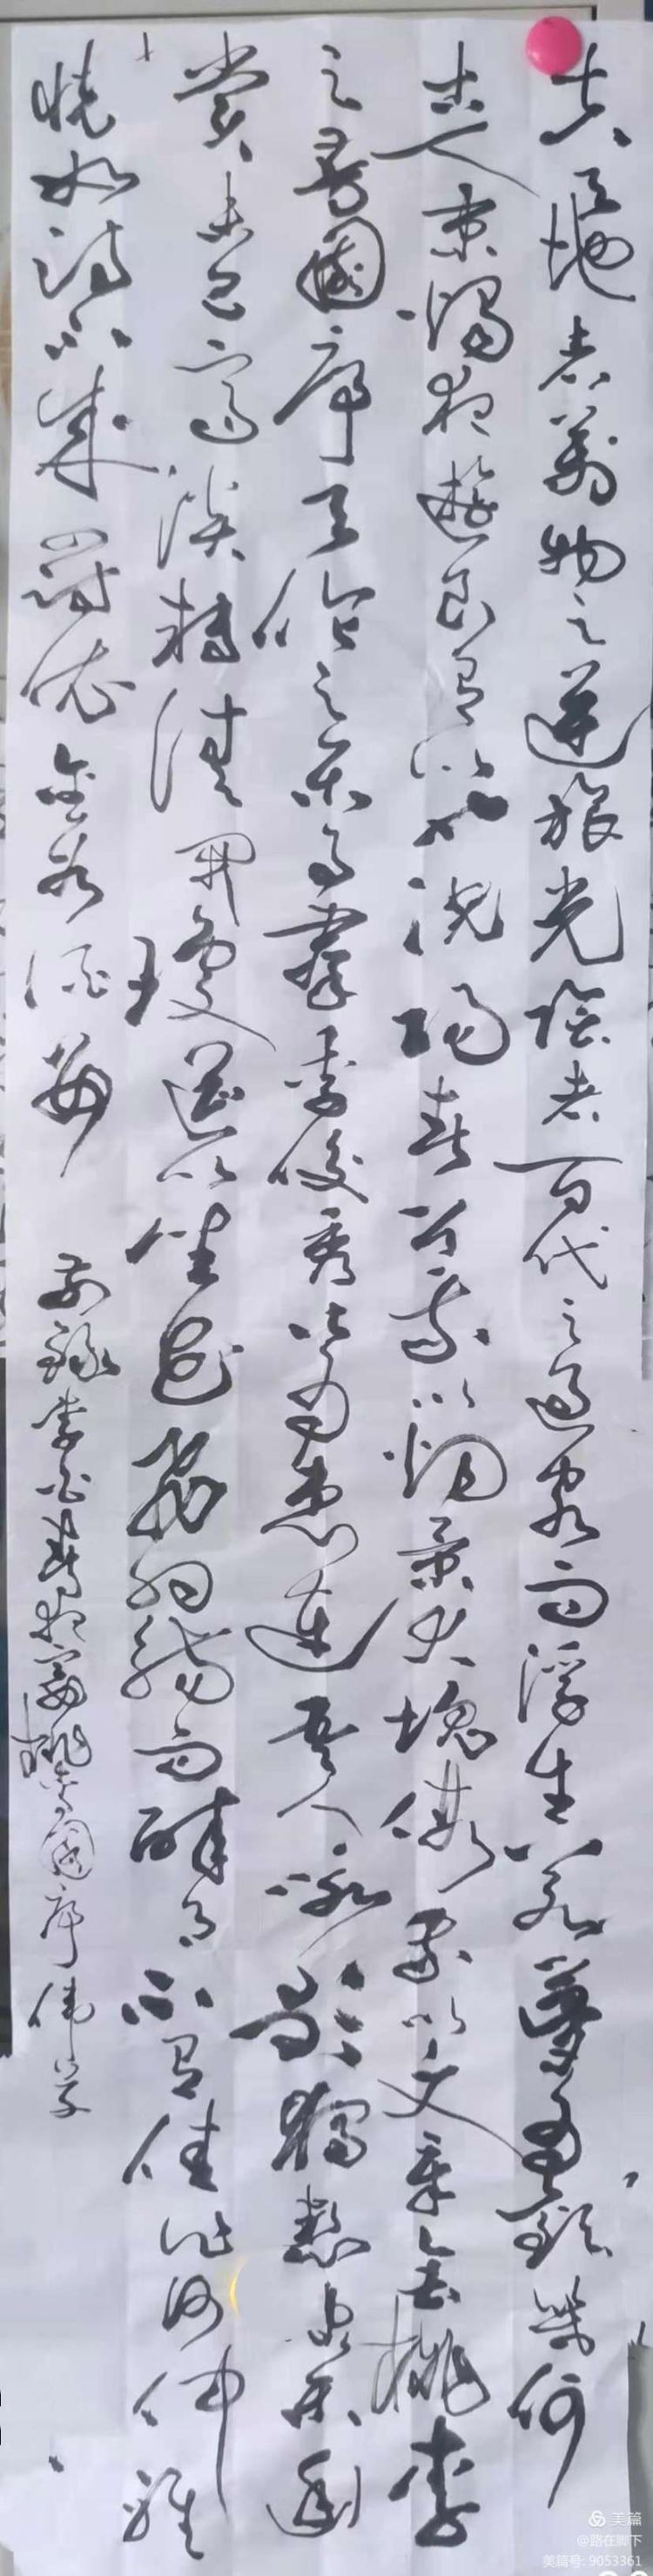 夫天地者萬物之逆旅光陰者百代之過客而浮生若夢為歡幾何
古人秉燭夜遊良有以也況陽春召我以煙景大塊假我以文章會桃李
之芳園序天倫之樂事羣季俊秀皆為惠連吾人詠歌獨慙康樂幽
賞未已高談轉清開瓊筵以坐花飛羽觴而醉月不有佳作何伸雅
懷如詩不成罰依金谷酒數 錄李白春夜宴桃李園序
美篇
@路在脚下
美篇号: 9053361